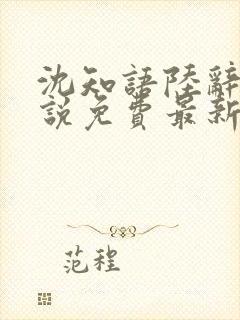 沈知語陸辭
說免費最新
范程